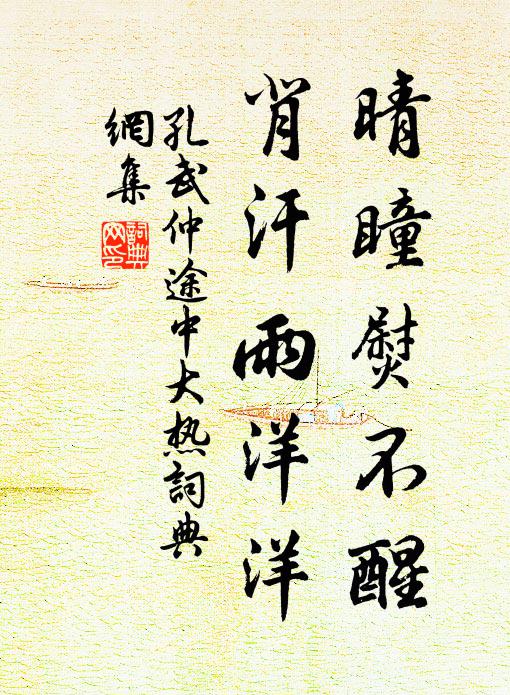 晴瞳熨不醒
背汗雨洋洋
孔武仲途中大热詞典
網集
詞典网印